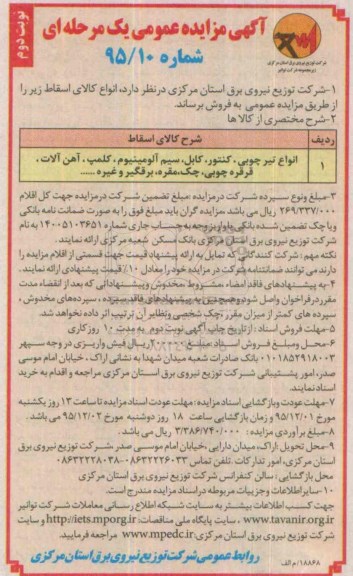 آگهی مزایده عمومی یک مرحله ای
شماره ۹۵/۱۰
نوبت دوم
شرکت توزیع نیروی برق استان مرکزی
۱-شرکت توزیع نیروی برق استان مرکزی درنظر دارد، انواع کالای اسقاط زیر را
از طریق مزایده عمومی به فروش برساند.
۲-شرح مختصری از کالا ها
ردیف شرح کالای اسقاط
۱ انواع تیر چوبی ، کنتور، کابل، سیم آلومینیوم ، کلمپ ، آهن آلات ،
قرقره چوبی، جک،مقره، برقگیر و غیره ......
۳-مبلغ ونوع سپرده شرکت درمزایده :مبلغ تضمین شرکت درمزایده جهت کل اقلام
۲۶۹/۳۳۷/۰۰۰ ریال می باشد. مزایده گران باید مبلغ فوق را به صورت ضمانت نامه بانکی
ویا چک تضمین شده بانکی یا واریز وجه به حساب جاری شماره ۱۴۰۰۵۱۰۳۶۵۱ به نام
شرکت توزیع نیروی برق استان مرکزی بانک مسکن شعبه مرکزی ارائه نمایند.
نکته مهم : شرکت کنندگانی که تمایل به ارائه پیشنهاد قیمت جهت قسمتی از اقلام مزایده را
دارند می توانند ضمانتنامه شرکت در مزایده خود را معادل ۱۰٪ قیمت پیشنهادی ارائه نمایند.
۴-به پیشنهادهای فاقد امضاء ،مشروط ،مخدوش و پیشنهاداتی که بعد از انقضاء مدت
مقرر درفراخوان واصل شود وهمچنین به پیشنهادهای فاقد سپرده ، سپرده های مخدوش ،
سپرده های کمتر از میزان مقرر ،چک شخصی ونظایر آن ترتیب اثر داده نخواهد شد.
۵-مهلت فروش اسناد : از تاریخ چاپ آگهی نوبت دوم به مدت ۱۰ روزکاری
۶-محل ومبلغ فروش اسناد :مبلغ ریال فیش واریزی در وجه سپهر
۰۱۰۱۸۵۲۹۱۸۰۰۳ بانک صادرات شعبه میدان شهدا به نشانی اراک ، خیابان امام موسی
صدر، امور پشتیبانی شرکت توزیع نیروی برق استان مرکزی مراجعه و اقدام به خرید
اسناد نمایند.
۷-مهلت عودت وبازگشایی اسناد مزایده: مهلت عودت اسناد مزایده تاساعت ۱۳ روز یکشنبه
مورخ ۹۵/۱۲/۰۱ و زمان بازگشایی ساعت ۱۸ روز دوشنبه مورخ ۹۵/۱۲/۰۲ می باشد .
۸-مبلغ برآوردی مزایده : ۳/۳۸۶/۷۴۰/۰۰۰ ریال می باشد .
۹-محل تحویل :اراک، میدان دارایی ،خیابان امام موسی صدر ،شرکت توزیع نیروی برق
استان مرکزی، امور تدارکات .تلفن تماس ۰۸۶۳۲۲۲۶۰۳۳-۰۸۶۳۲۲۲۸۰۳۸
محل بازگشایی : سالن کنفرانس شرکت توزیع نیروی برق استان مرکزی
۱۰-سایراطلاعات وجزییات مربوطه دراسناد مزایده مندرج است.
جهت کسب اطلاعات بیشتر به سایت شبکه اطلاع رسانی معاملات شرکت توانیر
www.tavanir.org.ir ، سایت پایگاه ملی مناقصات: http://iets.mporg.ir و سایت
شرکت توزیع نیروی برق استان مرکزی www.mpedc.ir مراجعه فرمایید.
روابط عمومی شرکت توزیع نیروی برق استان مرکزی
۱۸۸۶۸/م الف